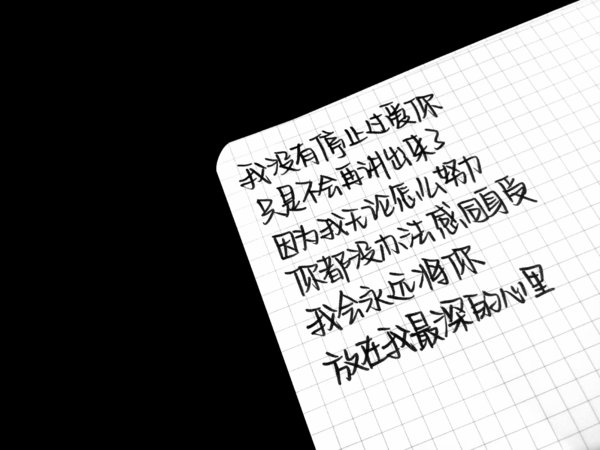 我没有停止过爱你
只是不会再讲出来了
因为我无论怎么努力
你都没办法感同身受
我会永远将你
放在我最深的心里